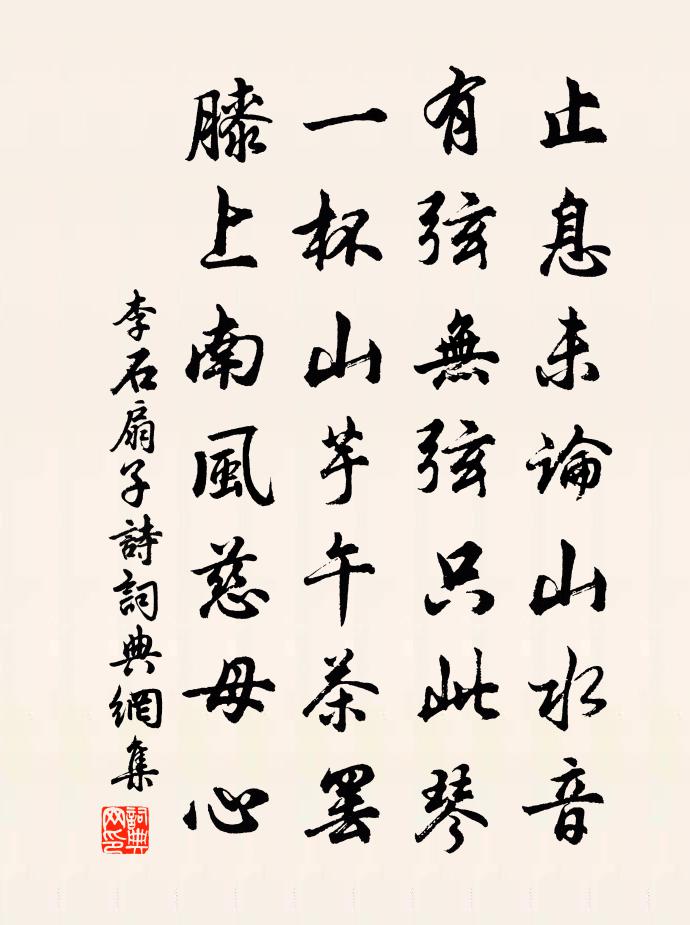 止息未論山水音
有弦無弦只此琴
一杯山芋午茶罢
膝上南風慈母心
李石扇子詩詞典網集
詞典網印